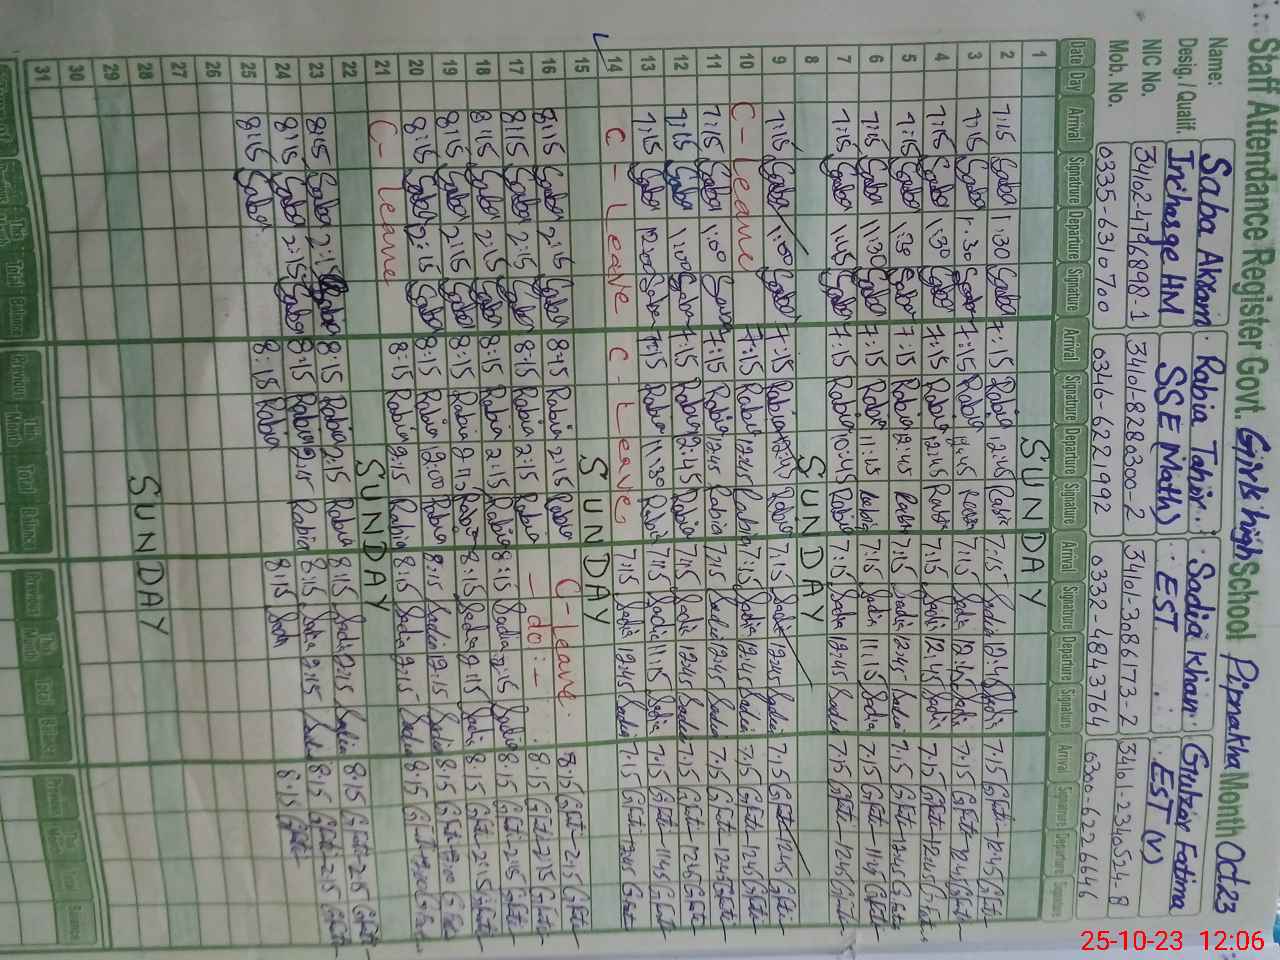 Staff Attendance Register Govt. Girls high School Pipnakha Month Oct 23
Name: Saba Akram Rabia Tahir Sadia Khan Gulzar Fatima
Desig. / Qualif. Incharge HM SSE (Maths) EST EST (V)
NIC No. 34101-8280300-2 34101-3086173-2 34101-2340524-8
Mob. No. 0335-6310700 0346-6221992 0332-4843764 0300-6226646
Date Day Arrival Signature Departure Signature Arrival Signatrure Departure Signature Arrival Signature Departure Signature Arrival Signature Departure Signature
1 SUNDAY
2 7:15 Saba 1:30 Saba 7:15 Rabia 12:45 Rabia 7:15 Sadia 12:45 Sadia 7:15 12:45
3 7:15 Saba 1:30 Saba 7:15 Rabia 12:45 Rabia 7:15 Sadia 12:45 Sadia 7:15 12:45
4 7:15 Saba 1:30 Saba 7:15 Rabia 12:45 Rabia 7:15 Sadia 12:45 Sadia 7:15 12:45
5 7:15 Saba 1:30 Saba 7:15 Rabia 12:45 Rabia 7:15 Sadia 12:45 Sadia 7:15 12:45
6 7:15 Saba 11:30 Saba 7:15 Rabia 11:15 Rabia 7:15 Sadia 11:15 Sadia 7:15
7 7:15 Saba 1:45 Saba 7:15 Rabia 10:45 Rabia 7:15 Sadia 12:45 Sadia 7:15 12:45
8 SUNDAY
9 7:15 Saba 1:00 Saba 7:15 Rabia 12:45 Rabia 7:15 Sadia 12:45 Sadia 7:15 12:45
10 C-Leave 7:15 Rabia 12:45 Rabia 7:15 Sadia 12:45 Sadia 7:15 12:45
11 7:15 Saba 1:00 Saba 7:15 Rabia 12:45 Rabia 7:15 Sadia 12:45 Sadia 7:15 12:45
12 7:15 Saba 1:00 Saba 7:15 Rabia 12:45 Rabia 7:15 Sadia 12:45 Sadia 7:15 12:45
13 7:15 Saba 12:00 Saba 7:15 Rabia 11:30 Rabia 7:15 Sadia 11:15 Sadia 7:15 11:45
14 C-Leave C-Leave 7:15 Sadia 12:45 Sadia 7:15 12:45
15 SUNDAY
16 8:15 Saba 2:15 Saba 8:15 Rabia 2:15 Rabia C-Leave 8:15 2:15
17 8:15 Saba 2:15 Saba 8:15 Rabia 2:15 Rabia -do- 8:15 2:15
18 8:15 Saba 2:15 Saba 8:15 Rabia 2:15 Rabia 8:15 Sadia 2:15 Sadia 8:15 2:15
19 8:15 Saba 2:15 Saba 8:15 Rabia 2:15 Rabia 8:15 Sadia 2:15 Sadia 8:15 2:15
20 8:15 Saba 2:15 Saba 8:15 Rabia 12:00 Rabia 8:15 Sadia 12:15 Sadia 8:15
21 C-Leave 8:15 Rabia 2:15 Rabia 8:15 Sadia 2:15 Sadia 8:15
22 SUNDAY
23 8:15 Saba 2:15 Saba 8:15 Rabia 2:15 Rabia 8:15 Sadia 2:15 Sadia 8:15 2:15
24 8:15 Saba 2:15 Saba 8:15 Rabia 2:15 Rabia 8:15 Sadia 2:15 Sadia 8:15 2:15
25 8:15 Saba 8:15 Rabia 8:15 Sadia 8:15
26
27
28
29 SUNDAY
30
31
Previous This Month Total Balance Previous This Month Total Balance Previous This Month Total Balance
25-10-23 12:06